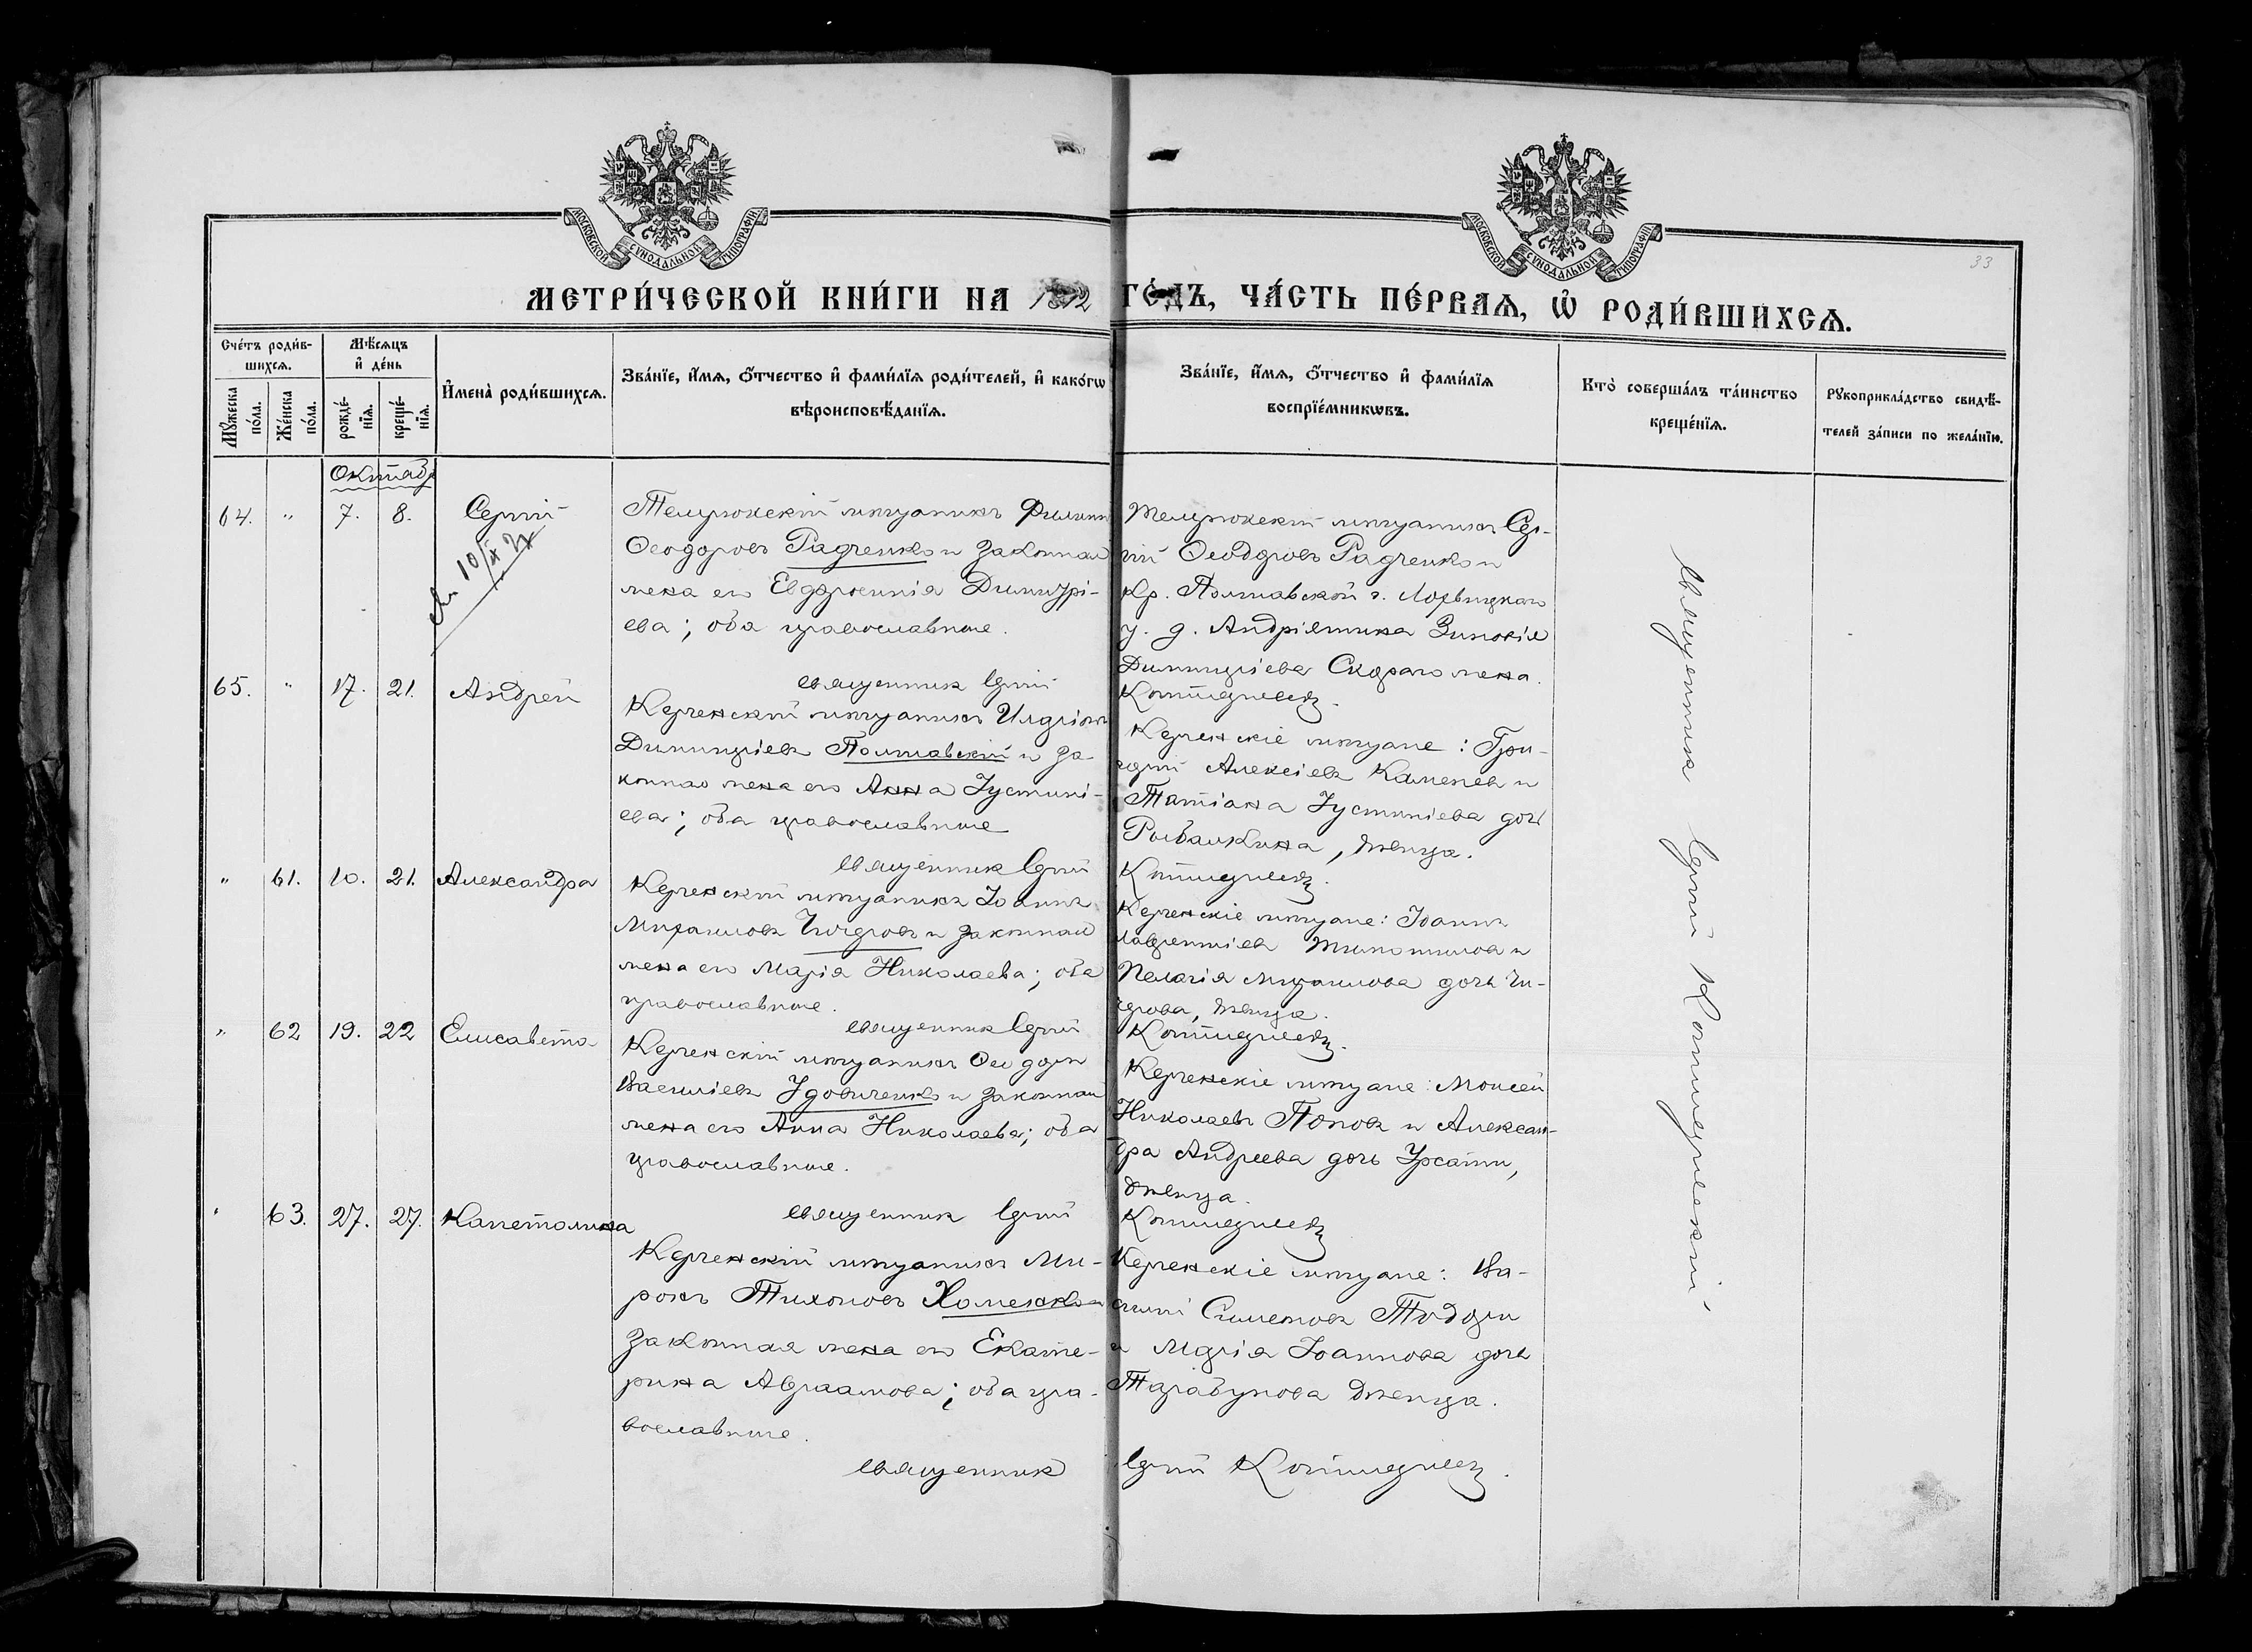 МОСКОВСКОЙ СѴНОДАЛЬНОЙ ТИПОГРАФІИ
МОСКОВСКОЙ СѴНОДАЛЬНОЙ ТИПОГРАФІИ
33
МЕТРИ́ЧЕСКОЙ КНИ́ГИ НА 1892 ГО́ДЪ, ЧА́СТЬ ПЕ́РВАѦ, Ѡ҆ РОДИ́ВШИХСѦ.
Сче́тъ роди́в-
шихсѧ.
Мꙋ́жеска по́ла.
Же́нска по́ла.
Мѣ́сѧцъ
и҆ де́нь
рожде́-
нїѧ.
креще́-
нїѧ.
И҆мена̀ роди́вшихсѧ.
Зва́нїе, и҆́мѧ, ѻ҆́тчество и҆ фами́лїѧ роди́телей, и҆ како́гѡ
вѣроисповѣ́данїѧ.
Зва́нїе, и҆́мѧ, ѻ҆́тчество и҆ фами́лїѧ
воспрїе́мникѡвъ.
Кто̀ соверша́лъ та́инство
креще́нїѧ.
Рꙋкоприкла́дство свидѣ́-
телей за́писи по жела́нїю.
Октябр
64. " 7. 8. Сергій
Темрюкскій мѣщанинъ Филипп
Ѳеодоровъ Радченко и законная
жена его Евфросинія Димитрі-
ева; оба православные.
Темрюкскій мѣщанинъ Сер-
гій Ѳеодоровъ Радченко и
Кр. Полтавской г. Лохвицкаго
у. д. Андріяшика Зиновія
Димитріева Скораго жена.
священник Сергій Котлеревск.
65. " 17. 21. Андрей
Керченскій мѣщанинъ Иларіонъ
Димитріевъ Полтавскій и за-
конная жена его Анна Іустині-
ева; оба православные
Керченскіе мѣщане: Гри-
горій Алексіевъ Каменев и
Татіана Іустиніева дочь
Рыбалкина, дѣвица.
священник Сергій
" 61. 10. 21. Александра
Керченскій мѣщанинъ Іоаннъ
Михаиловъ Чичеровъ и законная
жена его Марія Николаева; оба
православные.
Керченскіе мѣщане: Іоаннъ
Лаврентіев и
Пелагія Михаилова дочь Чи-
черова, дѣвица.
священник Сергій
" 62 19. 22 Елисавета
Керченскій мѣщанинъ Ѳеодоръ
Василіевъ Удовиченко и законная
жена его Анна Николаева; оба
православные.
Керченскіе мѣщане: Моисей
Николаевъ Поповъ и Алексан-
дра Андреева дочь Урсати,
дѣвица.
священник Сергій
" 63. 27. 27. Капетолина
Керченскій мѣщанинъ Ми-
ронъ Тихоновъ Хоменко и
законная жена его Екате-
рина Авраамова; оба пра-
вославные.
Керченскіе мѣщане: Ва-
силій Симеоновъ
и Марія Іоаннова дочь
Тарабунова дѣвица.
священник Сергій
Священник Сергій